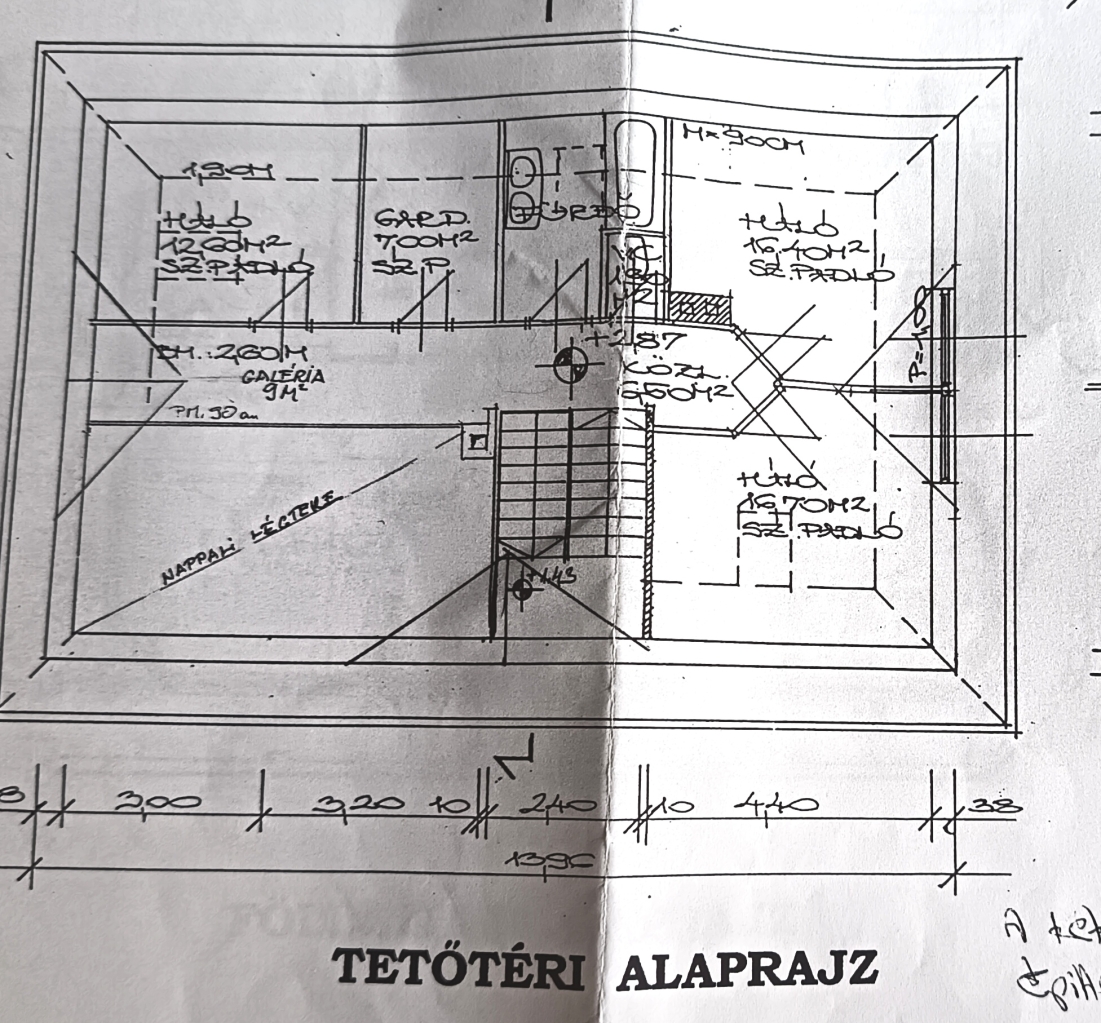 M=90CM
1,90M
HÁLÓ
12,60M²
SZ.PADLÓ
GARD.
7,00M²
SZ.P
FÜRDŐ
WC
HÁLÓ
16,40M²
SZ.PADLÓ
P=1,00
+2,87
BM.:2,60M
GALÉRIA
9M²
KÖZL.
PM. 90 cm
NAPPALI LÉGTERE
HÁLÓ
16,70M²
SZ.PADLÓ
+1,43
8 3,00 3,20 10 2,40 10 4,40 38
TETŐTÉRI ALAPRAJZ
A